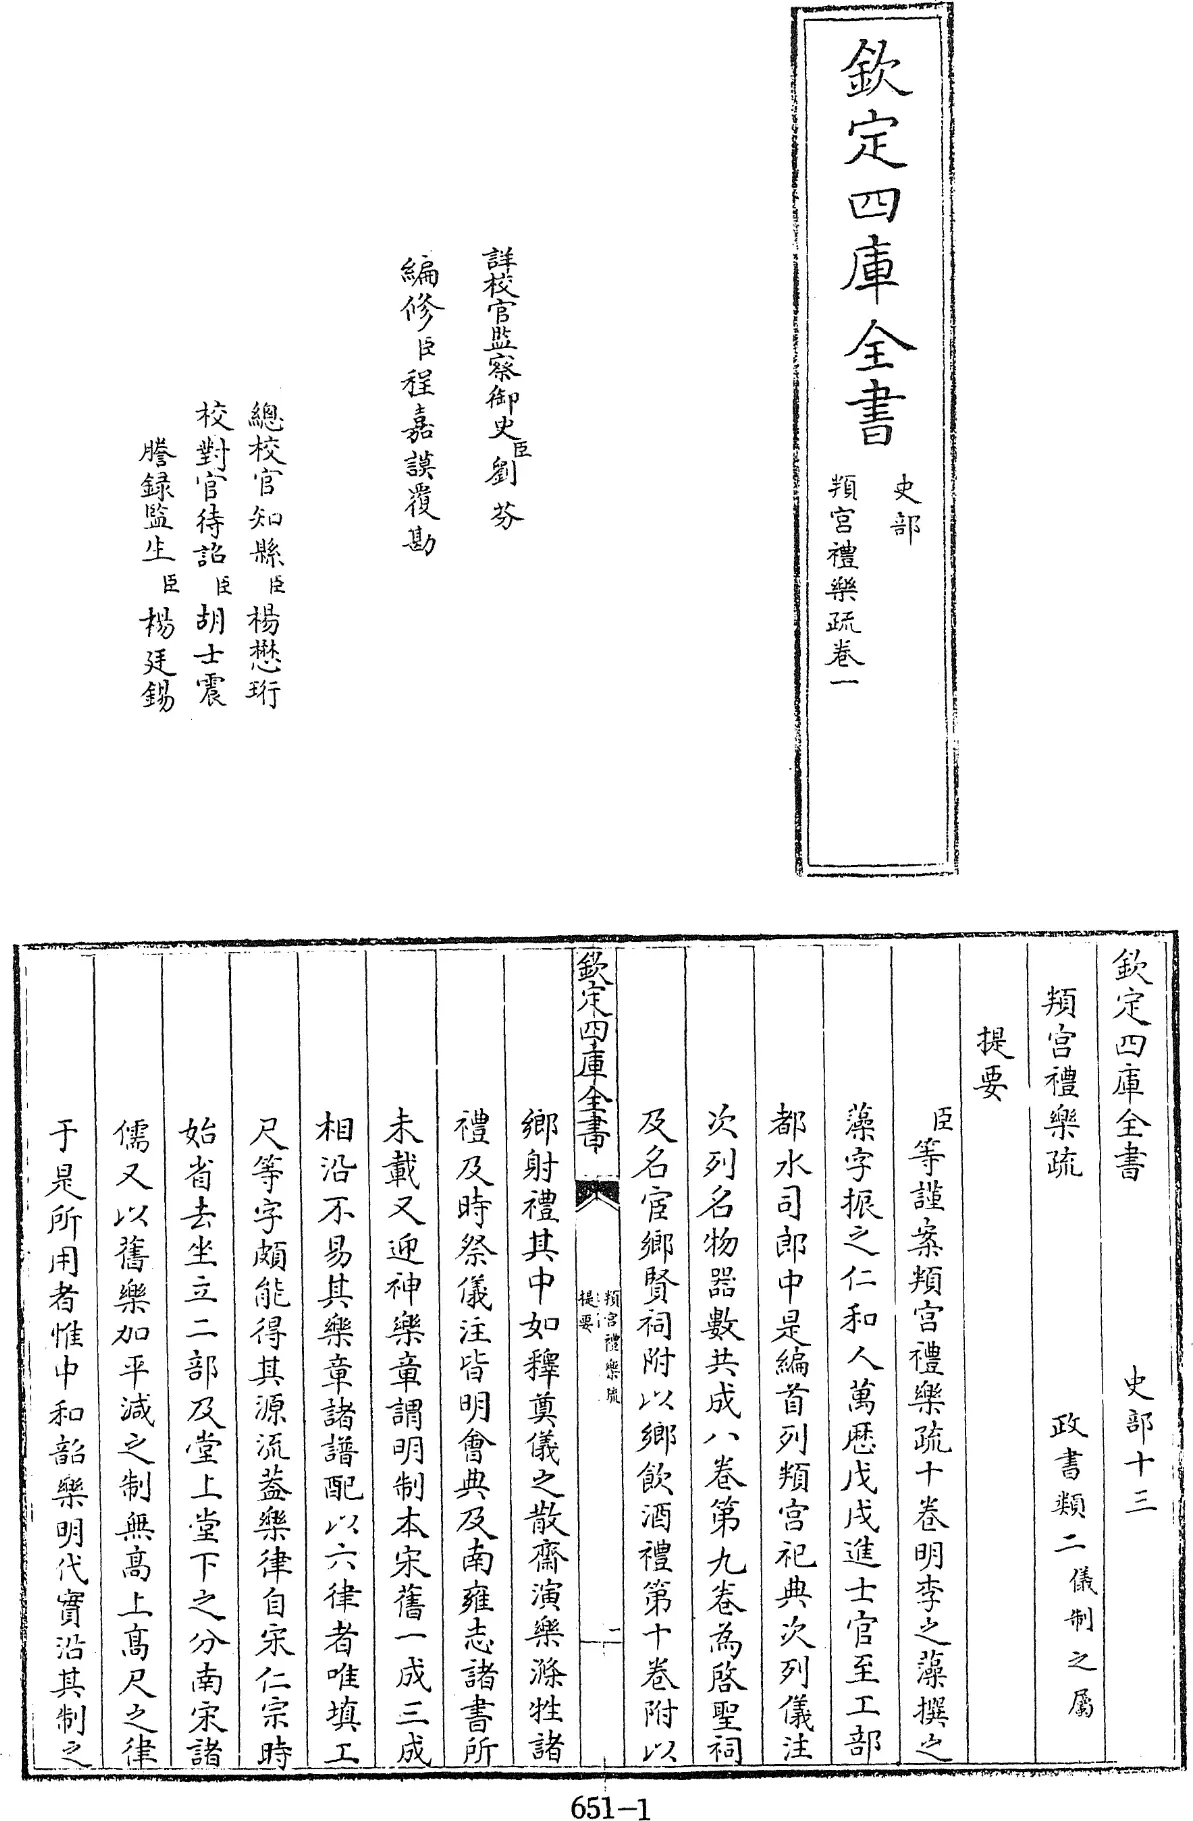 欽定四庫全書
史部
頖宮禮樂疏卷一
詳校官監察御史臣劉芬
編修臣程嘉謨覆勘
總校官知縣臣楊懋珩
校對官待詔臣胡士震
謄錄監生臣楊廷錫
欽定四庫全書 史部十三
頖宮禮樂疏 政書類二儀制之屬
提要
臣等謹案頖宮禮樂疏十卷明李之藻撰之
藻字振之仁和人萬歴戊戌進士官至工部
都水司郎中是編首列頖宮祀典次列儀注
次列名物器數共成八卷第九卷為啓聖祠
及名宦鄉賢祠附以鄉飲酒禮第十卷附以
欽定四庫全書
頖宮禮樂疏
提要
二
鄉射禮其中如釋奠儀之散齋演樂滌牲諸
禮及時祭儀注皆明會典及南雍志諸書所
未載又迎神樂章謂明制本宋舊一成三成
相沿不易其樂章諸譜配以六律者唯填工
尺等字頗能得其源流葢樂律自宋仁宗時
始省去坐立二部及堂上堂下之分南宋諸
儒又以舊樂加平減之制無髙上髙尺之律
于是所用者惟中和韶樂明代實沿其制之
651-1